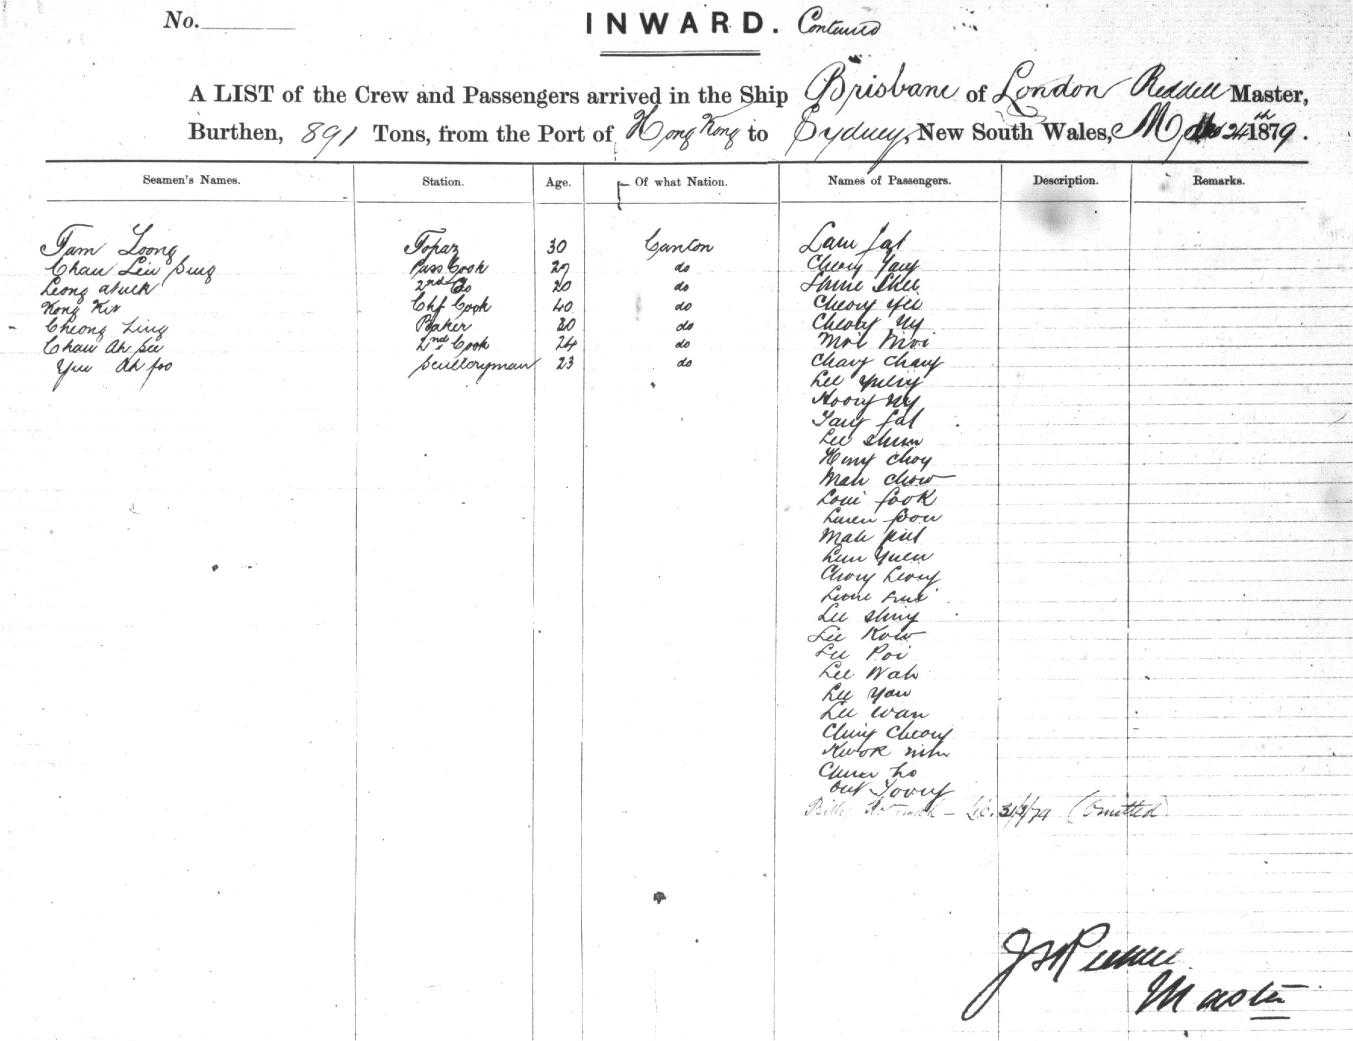 No.
INWARD. Continued
A LIST of the Crew and Passengers arrived in the Ship Brisbane of London Reddell Master,
Burthen, 891 Tons, from the Port of Hong Kong to Sydney, New South Wales, 24th 1879.
Seamen's Names. Station. Age. Of what Nation. Names of Passengers. Description. Remarks.
Tam Loong Topaz 30 Canton Lam fat
Chau Leu Sing Pass Cook 29 do Cheong Yang
Leong 2nd Do 20 do Shee
Kong Kee Chf Cook 40 do Cheong Yee
Cheong Ling Baker 20 do Cheong Ny
Chau Ah See 2nd Cook 24 do Moi Moi
Yuu Ah foo Sculleryman 23 do Chang Chang
Lee
Ny
Tang fat
Lee Shun
Hing Choy
Mah Chow
Loui fook
foon
Mah
Lun Yuen
Chong Leong
Lee Shing
Lee Kow
Lee Poi
Lee Wah
Lee Yau
Lee Wan
Ching Cheong
Kwok
Chun Ho
31/3/79 (Omitted)
Master